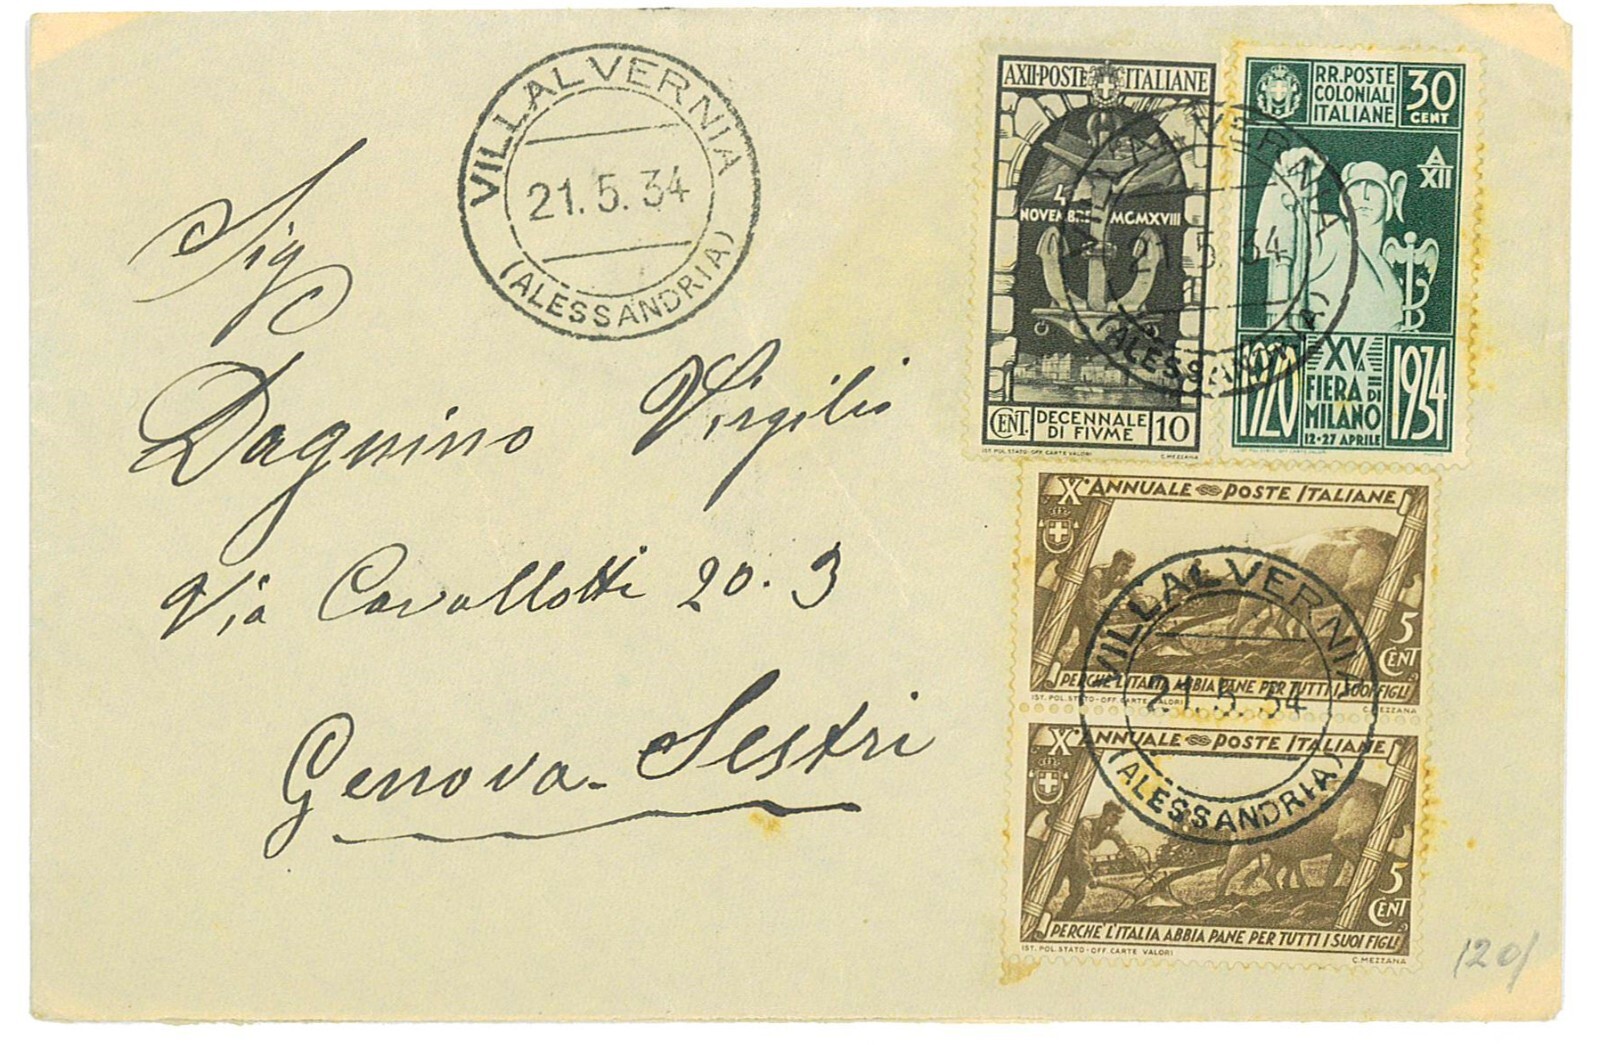 VILLALVERNIA
21.5.34
(ALESSANDRIA)
Sig
Dagnino Virgilio
Via Cavallotti 20.3
Genova-Sestri
A.XII-POSTE ITALIANE
4
NOVEMBRE MCMXVIII
CENT. DECENNALE DI FIVME 10
IST. POL. STATO-OFF. CARTE VALORI C. MEZZANA
RR. POSTE
COLONIALI
ITALIANE
30
CENT
A
XII
1920 XVA FIERA DI MILANO 1934
12-27 APRILE
VILLALVERNIA
21.5.34
1
(ALESSANDRIA)
X° ANNUALE POSTE ITALIANE
5
CENT
PERCHE L'ITALIA ABBIA PANE PER TUTTI I SUOI FIGLI
IST. POL. STATO-OFF. CARTE VALORI C. MEZZANA
VILLALVERNIA
21.5.34
(ALESSANDRIA)
X° ANNUALE POSTE ITALIANE
5
CENT
PERCHE L'ITALIA ABBIA PANE PER TUTTI I SUOI FIGLI
IST. POL. STATO-OFF. CARTE VALORI C. MEZZANA
120/